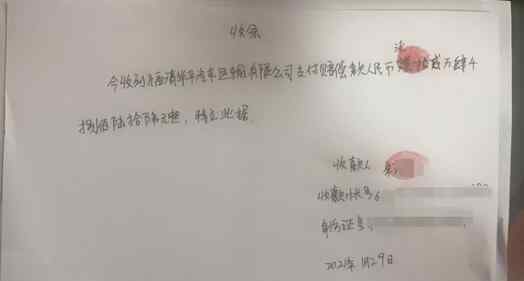 收条
今收到西清华平汽车运输有限公司支付赔偿款人民币拾贰万肆千
捌佰陆拾陆元，特立此据。
收款人
收款人
身份证号：
2021年1月29日